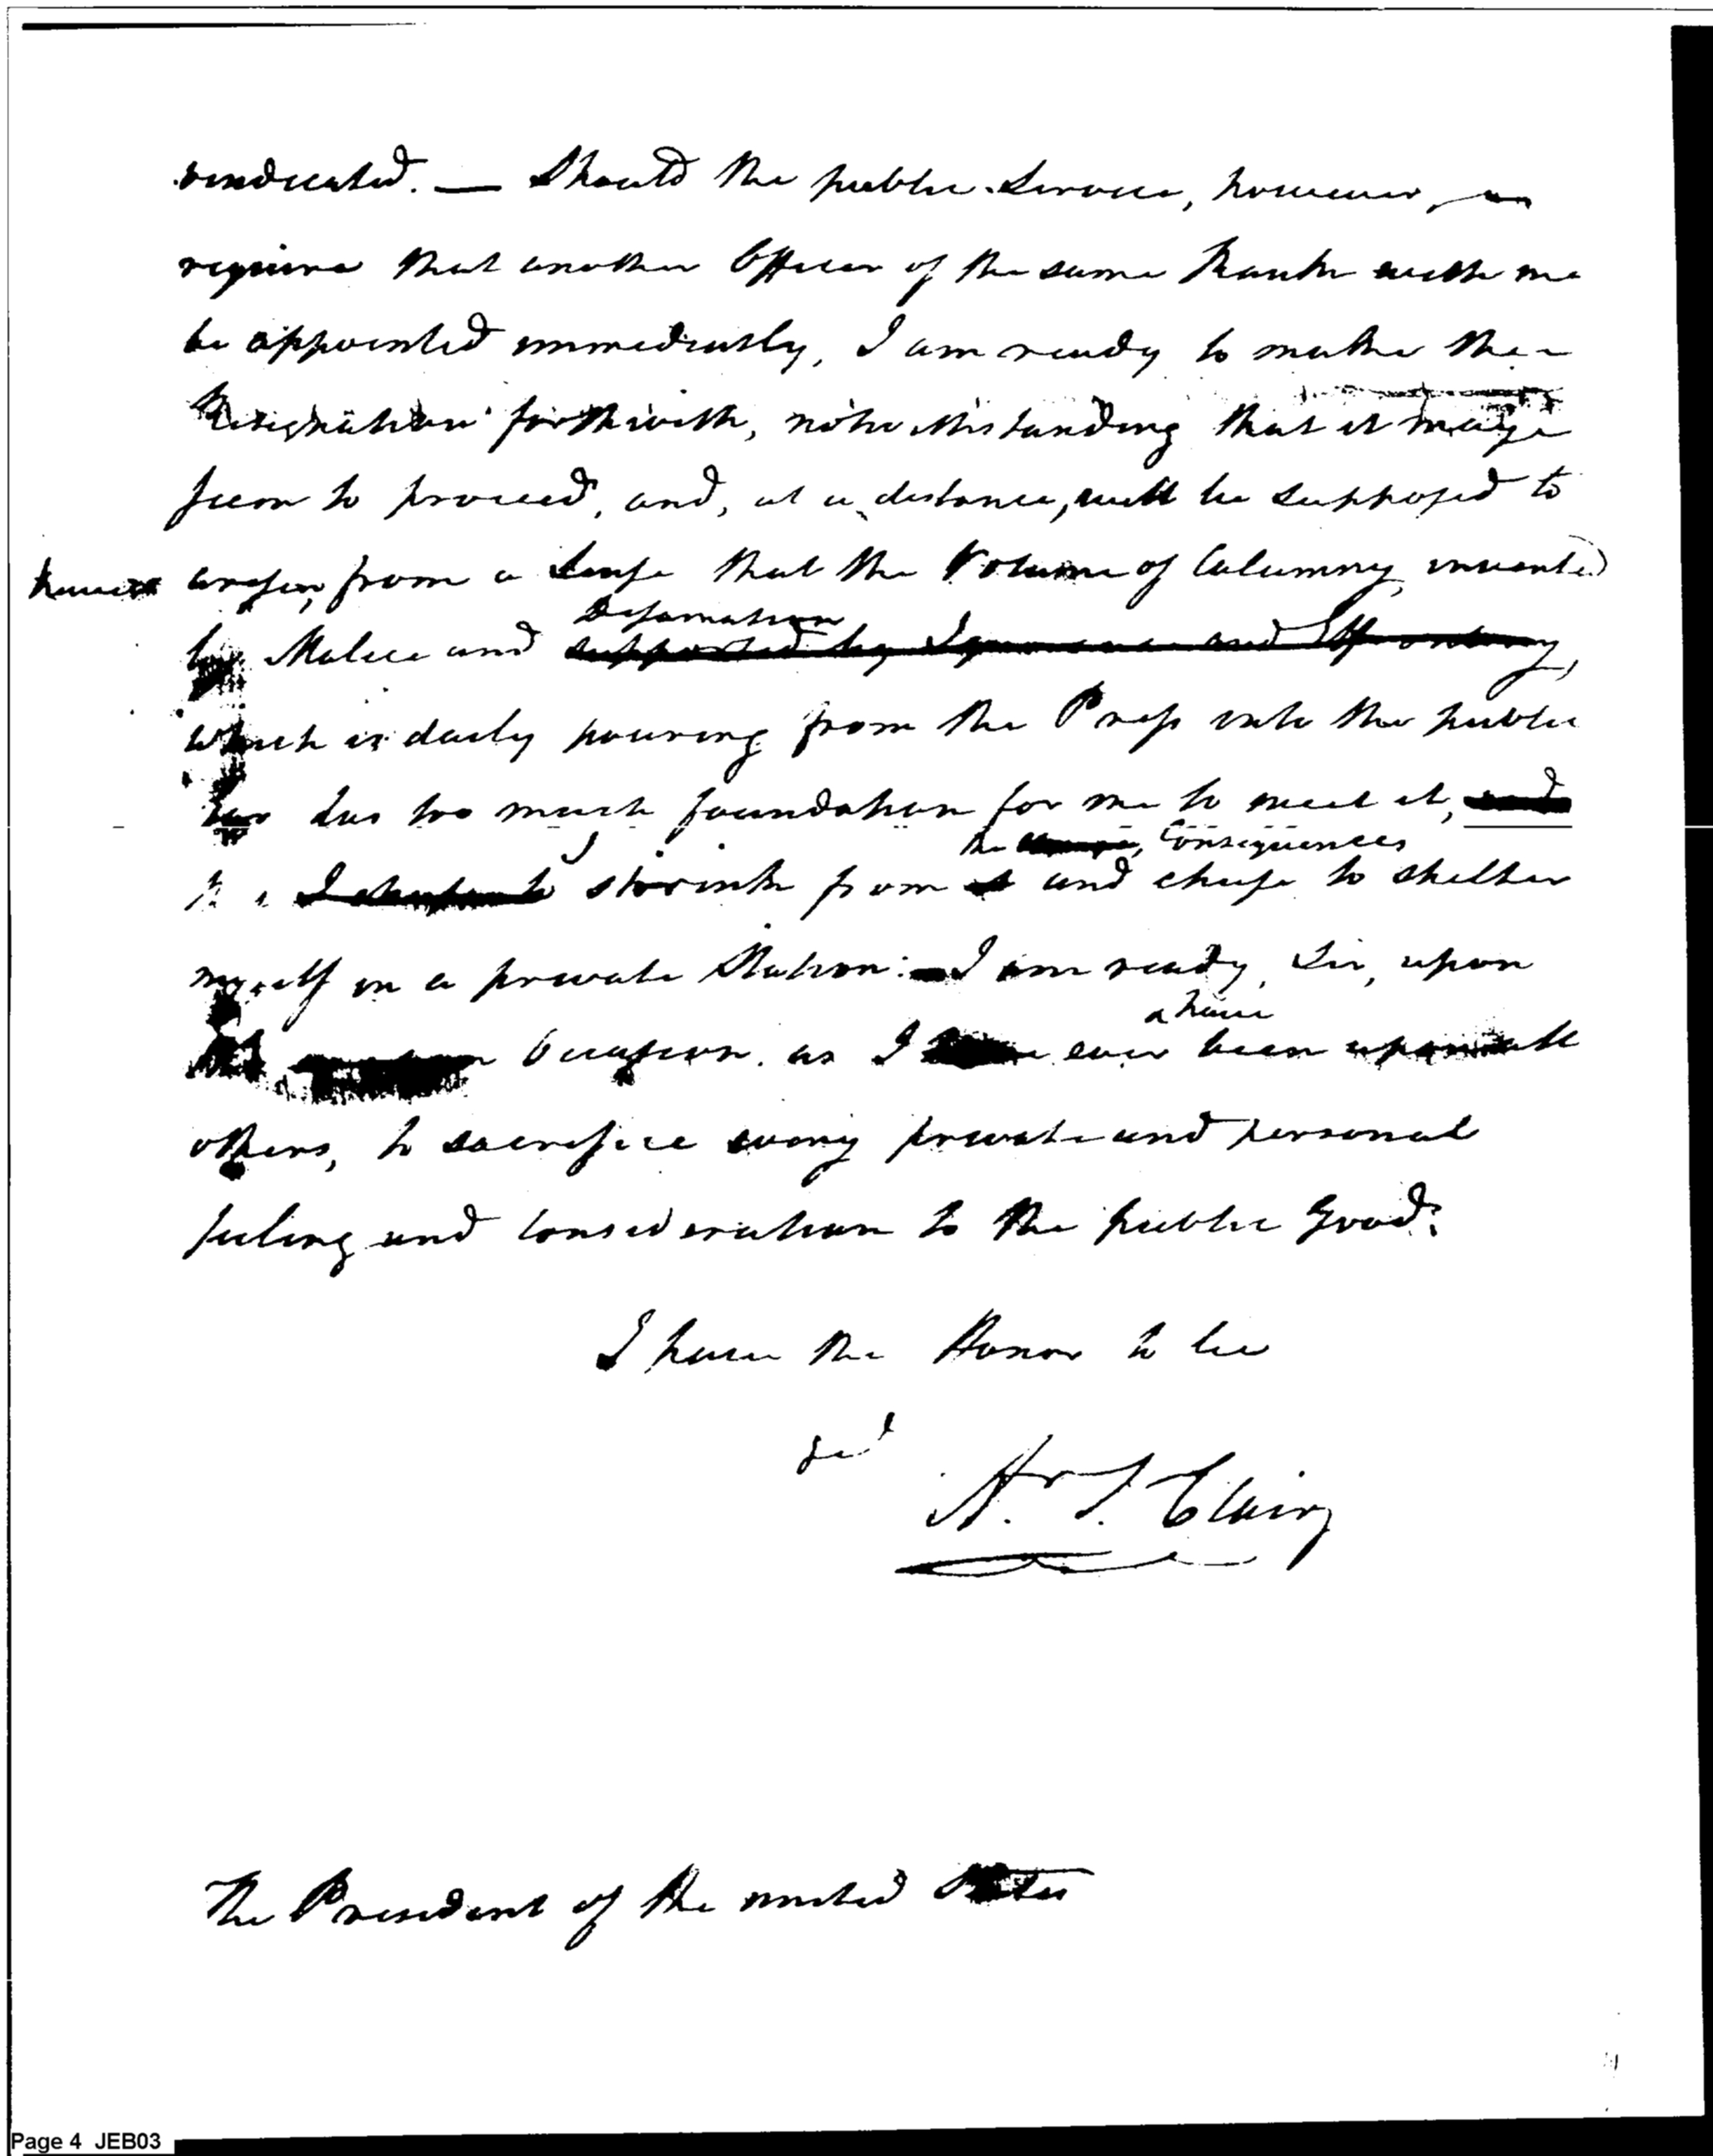 vindicated. — Should the public Service, however,
require that another Officer of the same Rank with me
be appointed immediately, I am ready to make the
Resignation forthwith, notwithstanding that it may
seem to proceed, and, at a distance, will be supposed to
have arisen, from a Sense that the Volume of Calumny invented
Defamation
by Malice and supported by Ignorance and Effrontery,
which is daily pouring from the Press into the public
Ear has too much foundation for me to meet it, and
the Consequences
I shrink from it and chuse to shelter
myself in a private Station: I am ready, Sir, upon
have
Occasion, as I ever been upon all
others, to sacrifice every private and personal
feeling and Consideration to the public Good.
I have the Honor to be
Ar. St. Clair
The President of the united States
Page 4 JEB03